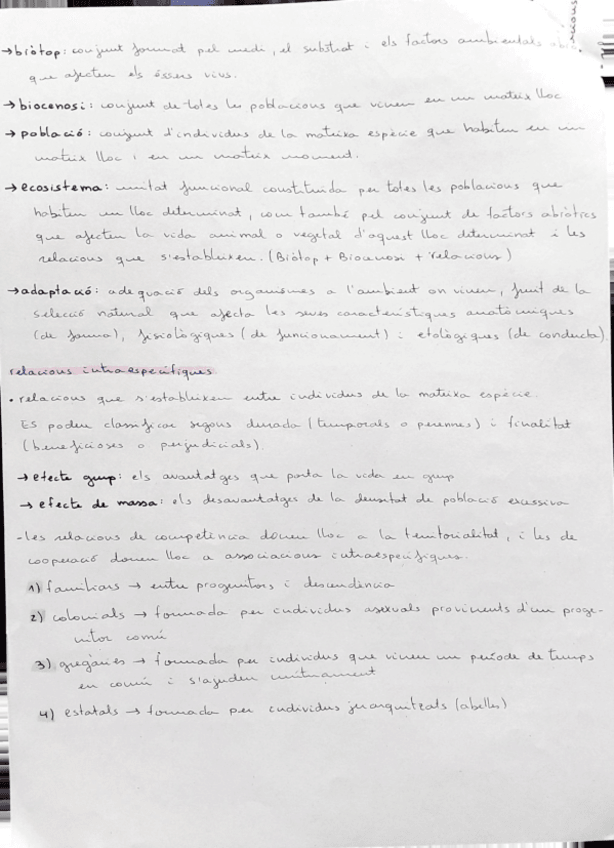 → biòtop: conjunt format pel medi, el substrat i els factors ambientals
que afecten els éssers vius.
→ biocenosi: conjunt de totes les poblacions que viuen en un mateix lloc
→ població: conjunt d'individus de la mateixa espècie que habiten en un
mateix lloc i en un mateix moment.
→ ecosistema: unitat funcional constituïda per totes les poblacions que
habiten un lloc determinat, com també pel conjunt de factors abiòtics
que afecten la vida animal o vegetal d'aquest lloc determinat i les
relacions que s'estableixen. (Biòtop + Biocenosi + relacions)
→ adaptació: adequació dels organismes a l'ambient on viuen, fruit de la
selecció natural que afecta les seves característiques anatòmiques
(de forma), fisiològiques (de funcionament) i etològiques (de conducta)
relacions intraespecífiques
• relacions que s'estableixen entre individus de la mateixa espècie.
Es poden classificar segons durada (temporals o perennes) i finalitat
(beneficioses o perjudicials).
→ efecte grup: els avantatges que porta la vida en grup
→ efecte de massa: els desavantatges de la densitat de població excessiva
- les relacions de competència donen lloc a la territorialitat, i les de
cooperació donen lloc a associacions intraespecífiques.
1) familiars → entre progenitors i descendència
2) colonials → formada per individus asexuals provinents d'un proge-
nitor comú
3) gregàries → formada per individus que viuen un període de temps
en comú i s'ajuden mútuament
4) estatals → formada per individus jerarquitzats (abelles)